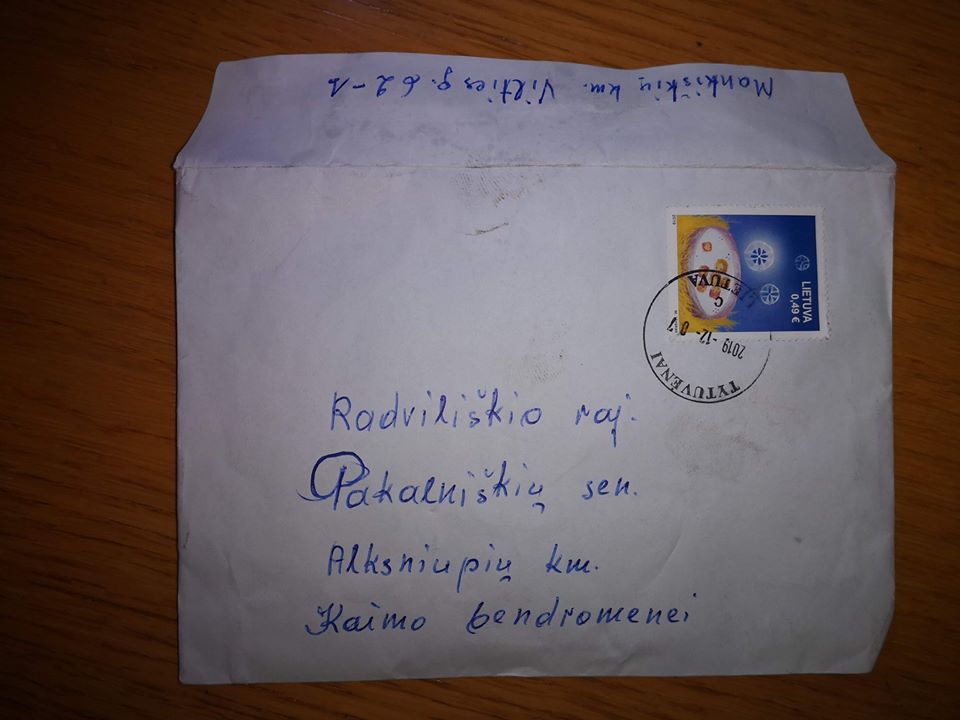 Monkiškių km. Vilties g. 62-1
LIETUVA
0,49 €
2019
LIETUVA
C
2019-12-07
TYTUVĖNAI
Radviliškio raj.
Pakalniškių sen.
Alksniupių km.
Kaimo bendromenei